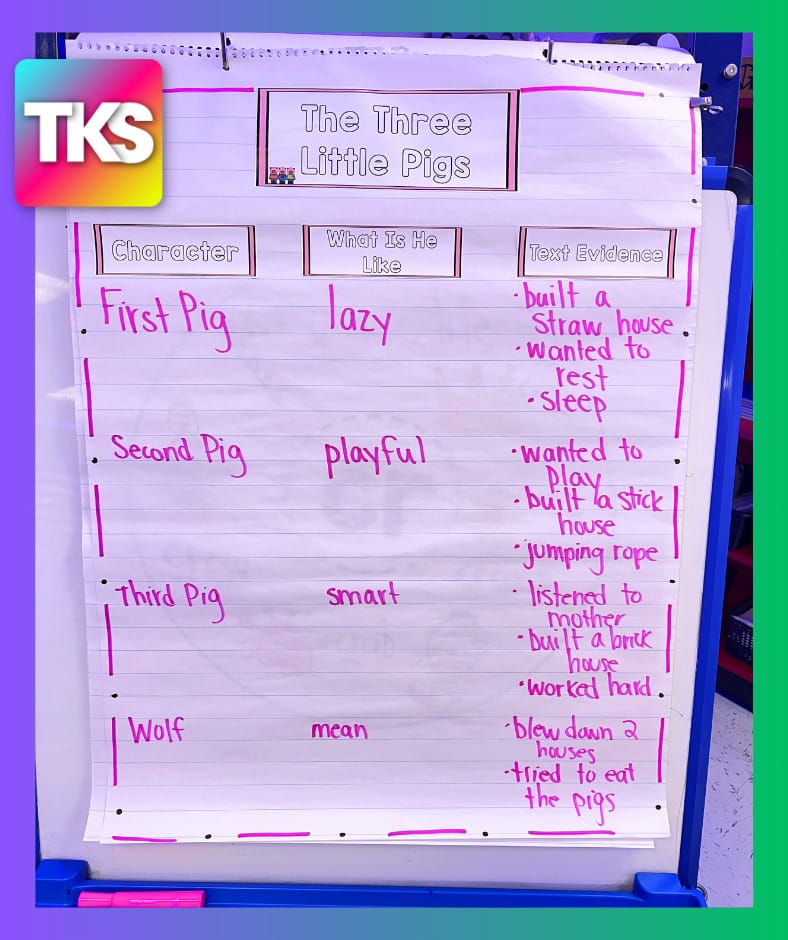 TKS
The Three
Little Pigs
Character
What Is He
Like
Text Evidence
First Pig
lazy
·built a
straw house
·wanted to
rest
·sleep
Second Pig
playful
·wanted to
play
·built a stick
house
·jumping rope
Third Pig
smart
·listened to
mother
·built a brick
house
·worked hard
Wolf
mean
·blew down 2
houses
·tried to eat
the pigs